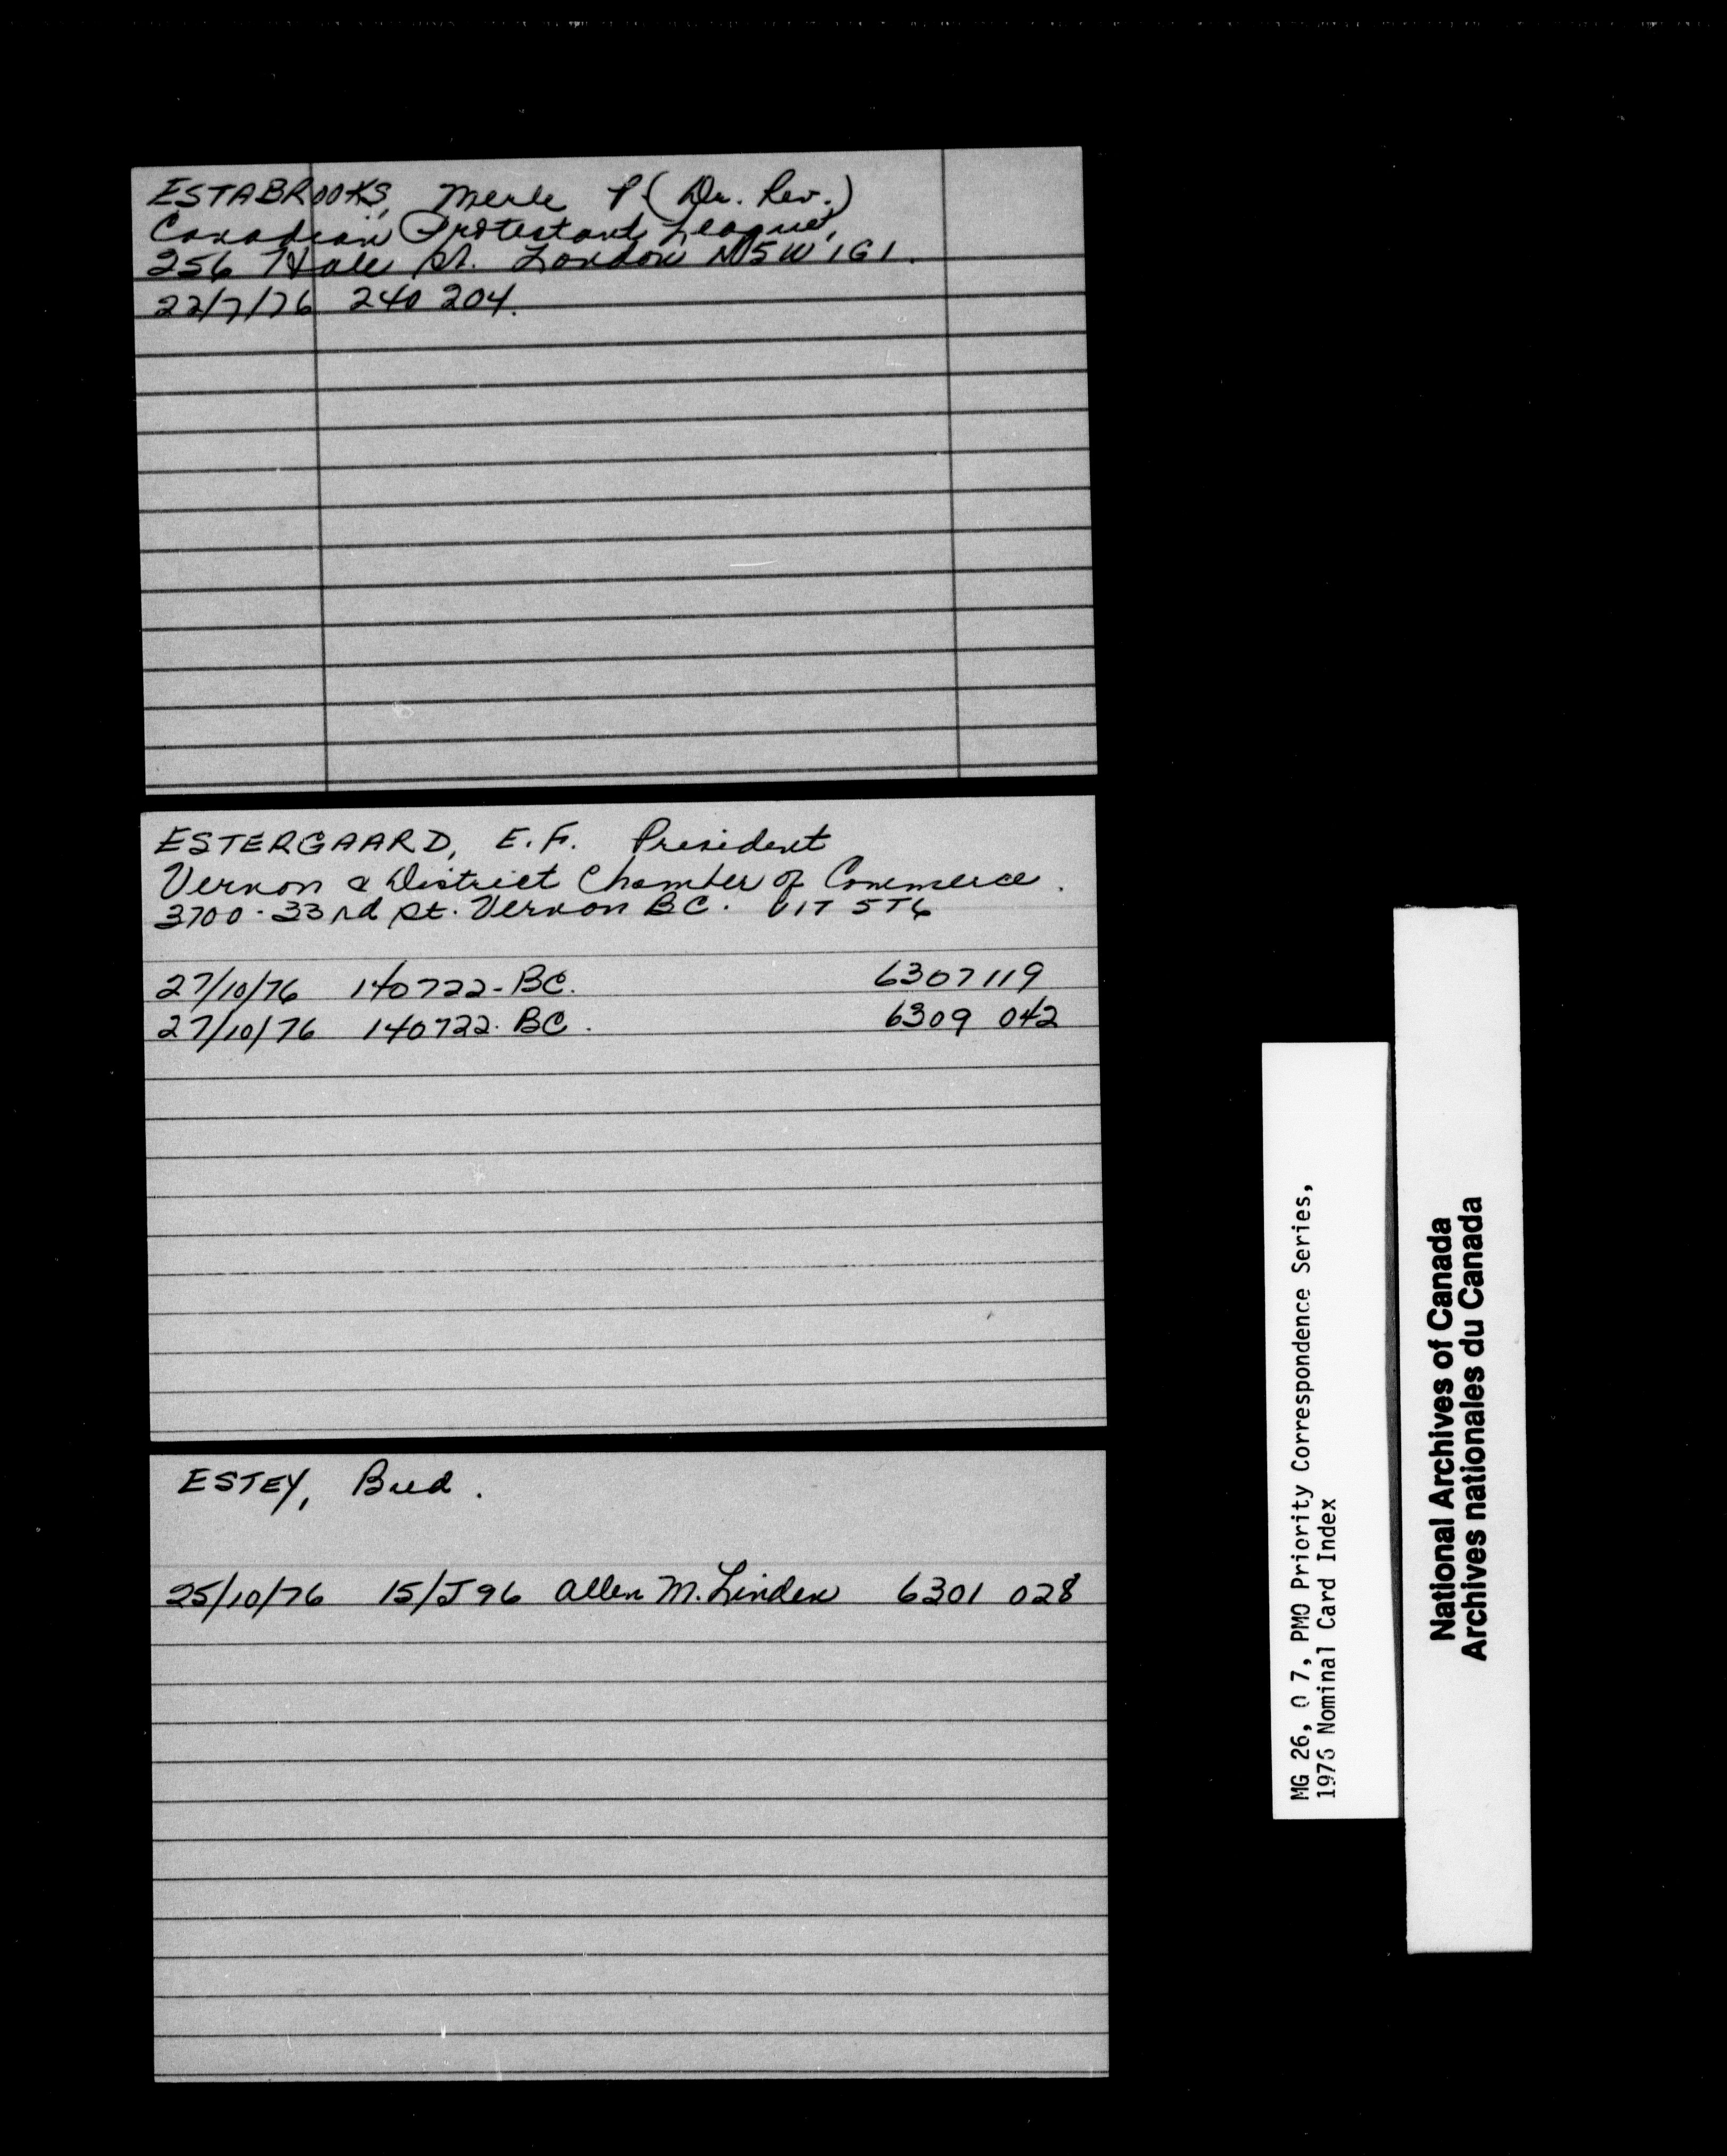 ESTABROOKS, Merle P. (Dr. Rev.)
Canadian Protestant League,
256 Hale St. London N5W 1G1.
22/7/76 240 204.
ESTERGAARD, E.F. President
Vernon & District Chamber of Commerce.
3700-33rd St. Vernon BC. V1T 5T6
27/10/76 140722-BC. 6307119
27/10/76 140722-BC. 6309 042
ESTEY, Bud.
25/10/76 15/J96 Allen M. Linden 6301 028
MG 26, O 7, PMO Priority Correspondence Series,
1976 Nominal Card Index
National Archives of Canada
Archives nationales du Canada